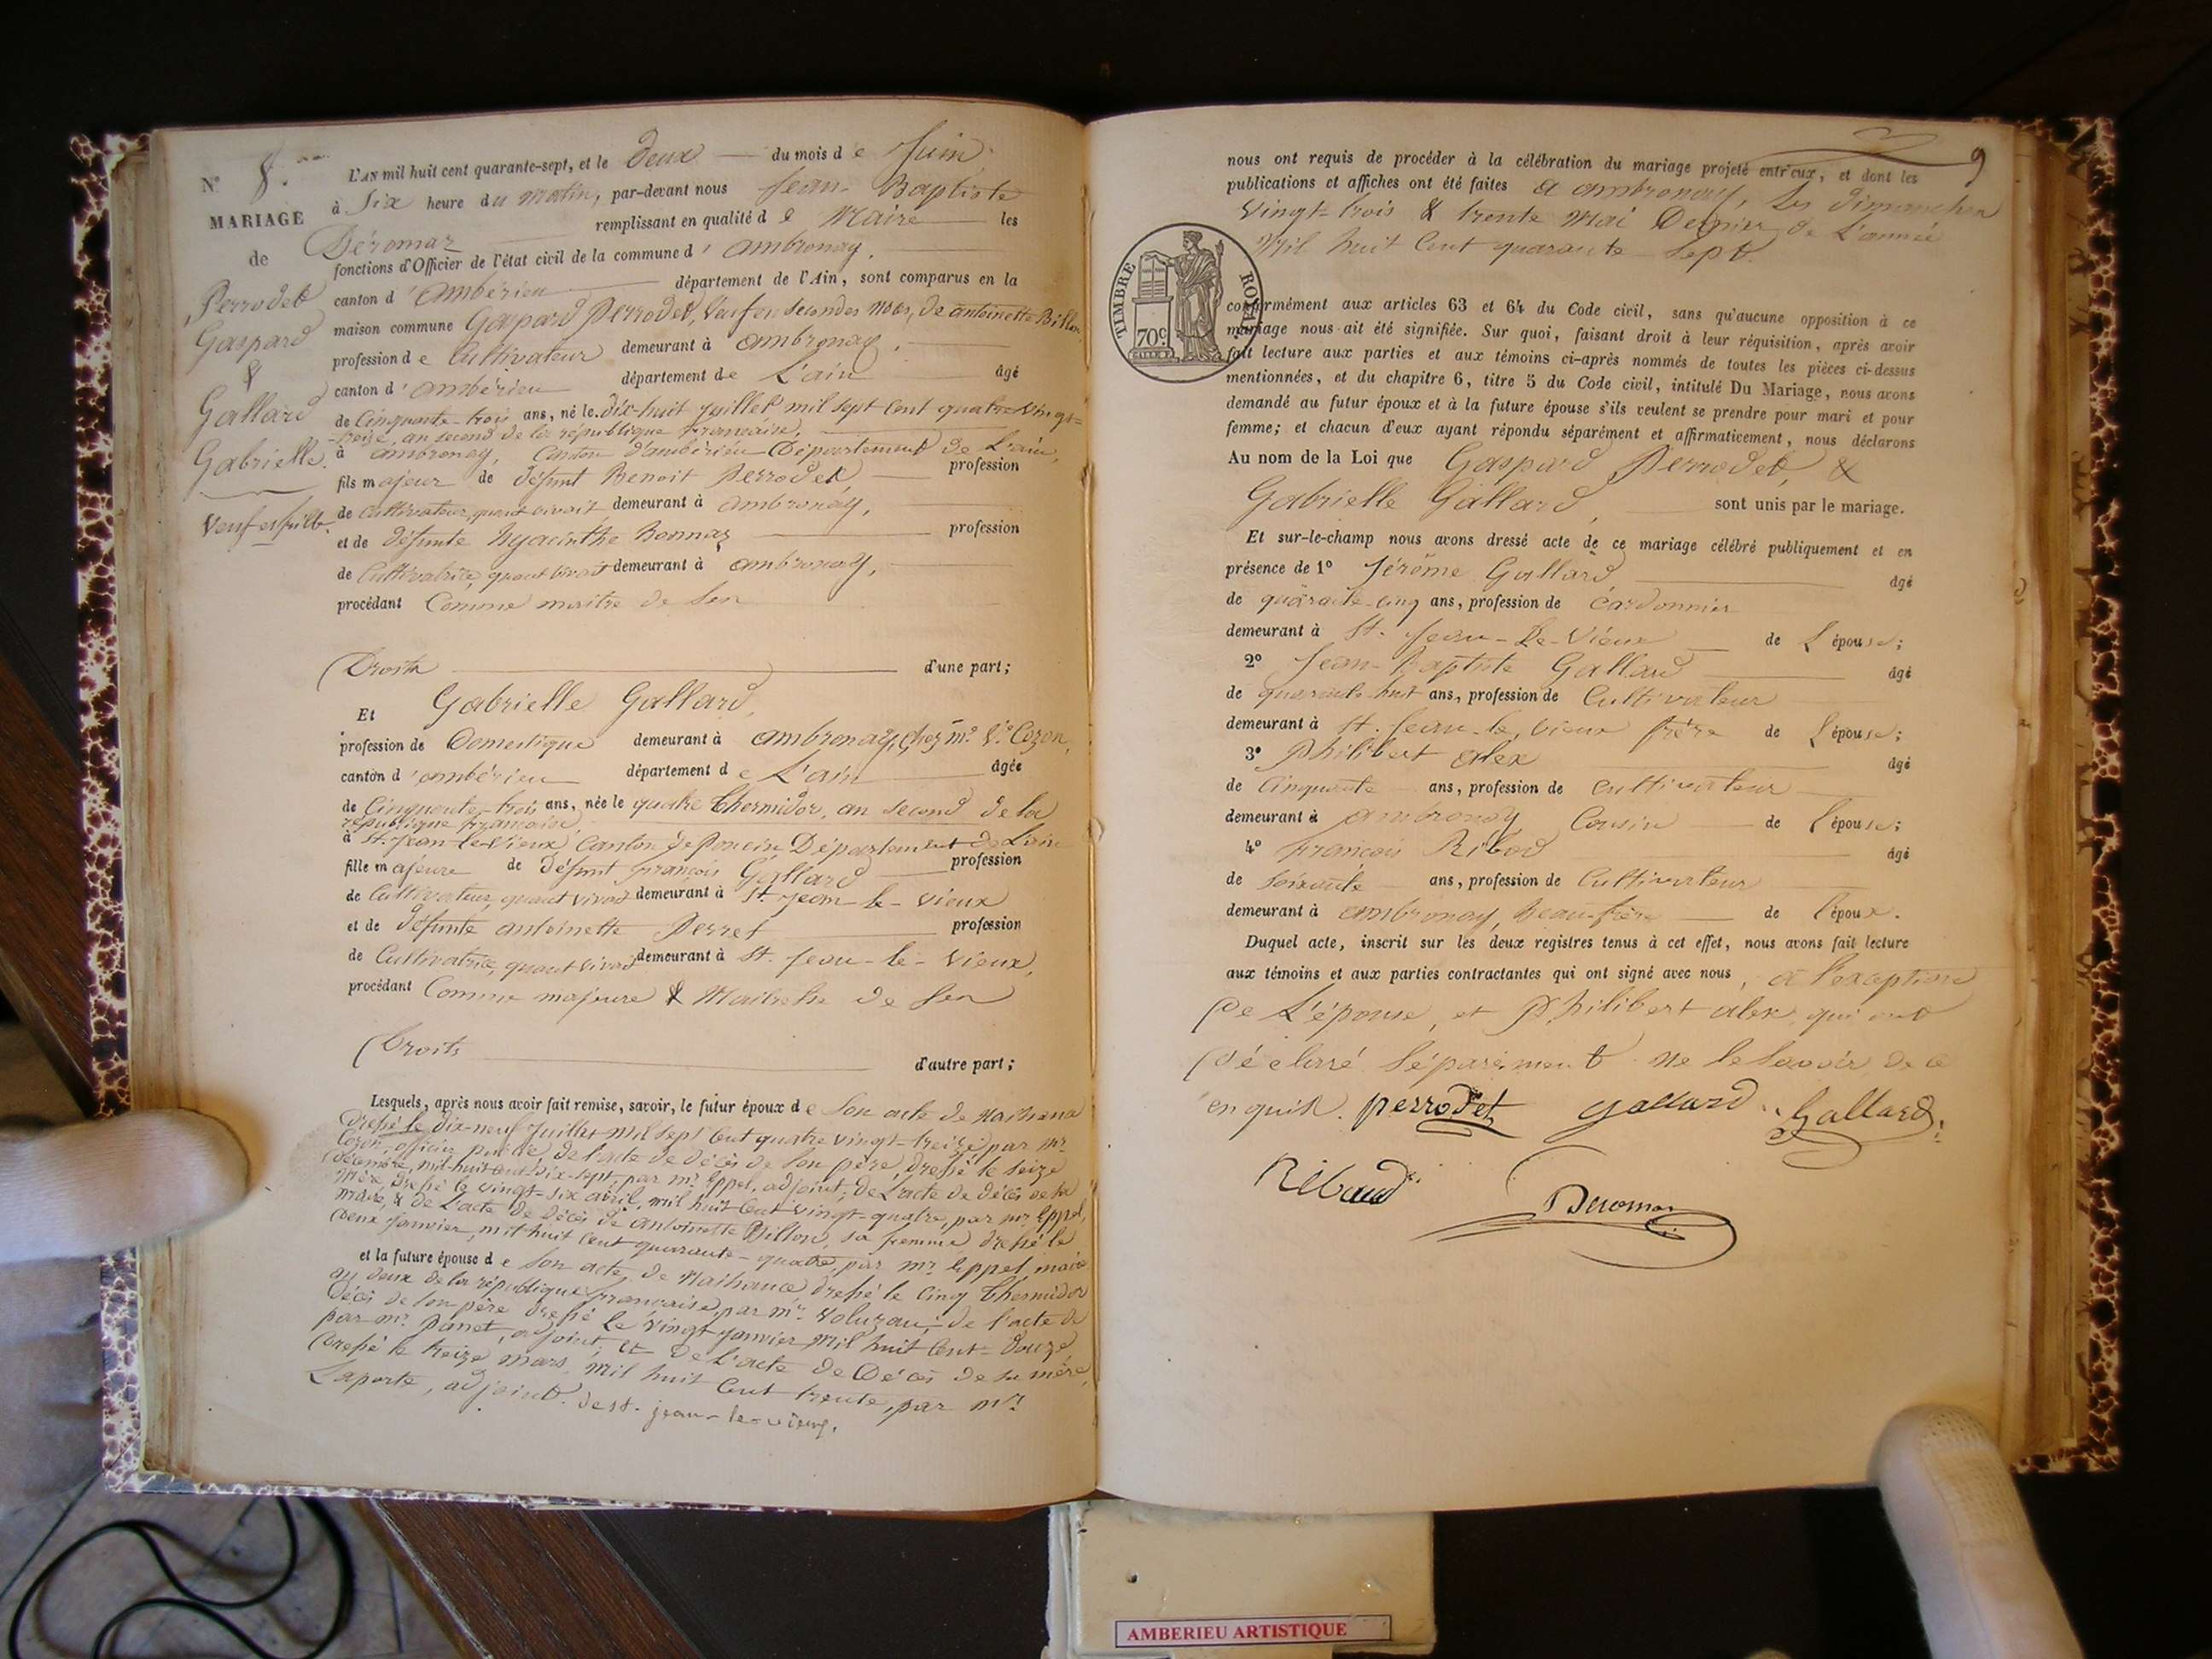 N° 8.
MARIAGE
de
Perrodet
Gaspard
&
Gallard
Gabrielle.
Veuf et fille.
L'AN mil huit cent quarante-sept, et le Deux du mois de Juin
à Six heure du matin, par-devant nous Jean-Baptiste
Déromaz remplissant en qualité de Maire les
fonctions d'Officier de l'état civil de la commune d'ambronay,
canton d'ambérieu département de l'Ain, sont comparus en la
maison commune Gaspard Perrodet, Veuf en secondes noces, de antoinette Billon
profession de Cultivateur demeurant à ambronay,
canton d'ambérieu département de L'ain âgé
de Cinquante-trois ans, né le dix-huit juillet mil sept Cent quatre vingt-
treize, an second de la république française,
à ambronay, Canton d'ambérieu Département de L'ain,
fils majeur de défunt Benoit Perrodet, profession
de Cultivateur, quant vivait demeurant à ambronay,
et de défunte hyacinthe Bonnaz profession
de Cultivatrice, quant vivait demeurant à ambronay,
procédant Comme maitre de Ses
Droits d'une part;
Et Gabrielle Gallard,
profession de Domestique demeurant à ambronay, chez me Ve Cozon,
canton d'ambérieu département de L'ain âgée
de Cinquante-trois ans, née le quatre thermidor, an second de la
république française,
à St. jean-le-Vieux Canton de Poncin Département de L'ain
fille majeure de défunt françois Gallard profession
de Cultivateur, quant vivait demeurant à St. Jean-le-Vieux
et de défunte antoinette Perret profession
de Cultivatrice, quant vivait demeurant à St. Jean-le-Vieux,
procédant Comme majeure & Maitresse de Ses
Droits d'autre part;
Lesquels, après nous avoir fait remise, savoir, le futur époux de Son acte de Naissance
Dressé le dix-neuf Juillet mil sept Cent quatre vingt-treize par mr
Cozon, officier public, de l'acte de décès de Son père, dressé le seize
décembre, mil-huit cent dix-sept, par mr Eppel, adjoint; de L'acte de décès de sa
mère, dressé le vingt-six avril, mil huit Cent vingt-quatre, par mr Eppel,
maire, & de L'acte de décès de antoinette Billon, sa femme, dressé le
Deux Janvier, mil huit Cent quarante-quatre, par mr Eppel, maire
et la future épouse de Son acte de Naissance dressé le Cinq thermidor
an deux de la république française, par mr Voluzau; de l'acte de
décès de Son père dressé le Vingt janvier Mil huit Cent-Douze
par mr Panet, adjoint, et de L'acte de Décès de sa mère,
Dressé le treize mars, mil huit Cent trente, par Mr
Laporte, adjoint de St. jean-le-vieux.
9
nous ont requis de procéder à la célébration du mariage projeté entr'eux, et dont les
publications et affiches ont été faites à ambronay, Les dimanches
Vingt-trois & trente Mai Dernier de L'année
Mil huit Cent quarante-Sept.
TIMBRE ROYAL
70c.
conformément aux articles 63 et 64 du Code civil, sans qu'aucune opposition à ce
mariage nous ait été signifiée. Sur quoi, faisant droit à leur réquisition, après avoir
fait lecture aux parties et aux témoins ci-après nommés de toutes les pièces ci-dessus
mentionnées, et du chapitre 6, titre 5 du Code civil, intitulé Du Mariage, nous avons
demandé au futur époux et à la future épouse s'ils veulent se prendre pour mari et pour
femme; et chacun d'eux ayant répondu séparément et affirmativement, nous déclarons
Au nom de la Loi que Gaspard Perrodet, &
Gabrielle Gallard, sont unis par le mariage.
Et sur-le-champ nous avons dressé acte de ce mariage célébré publiquement et en
présence de 1° Jérôme Gallard, âgé
de quarante-cinq ans, profession de Cordonnier
demeurant à St. Jean-Le-Vieux de L'épouse;
2° Jean-Baptiste Gallard âgé
de quarante-huit ans, profession de Cultivateur
demeurant à St. Jean-le-Vieux frère de L'épouse;
3° Philibert alex âgé
de Cinquante ans, profession de Cultivateur
demeurant à ambronay Cousin de l'épouse;
4° François Ribod âgé
de Soixante ans, profession de Cultivateur
demeurant à ambronay, beau-frère de l'époux.
Duquel acte, inscrit sur les deux registres tenus à cet effet, nous avons fait lecture
aux témoins et aux parties contractantes qui ont signé avec nous, à l'exception
De L'épouse, et Philibert alex qui ont
Déclaré Séparément ne le Savoir de ce
enquis. perrodet gallard Gallard
Ribaud Deromaz
AMBERIEU ARTISTIQUE